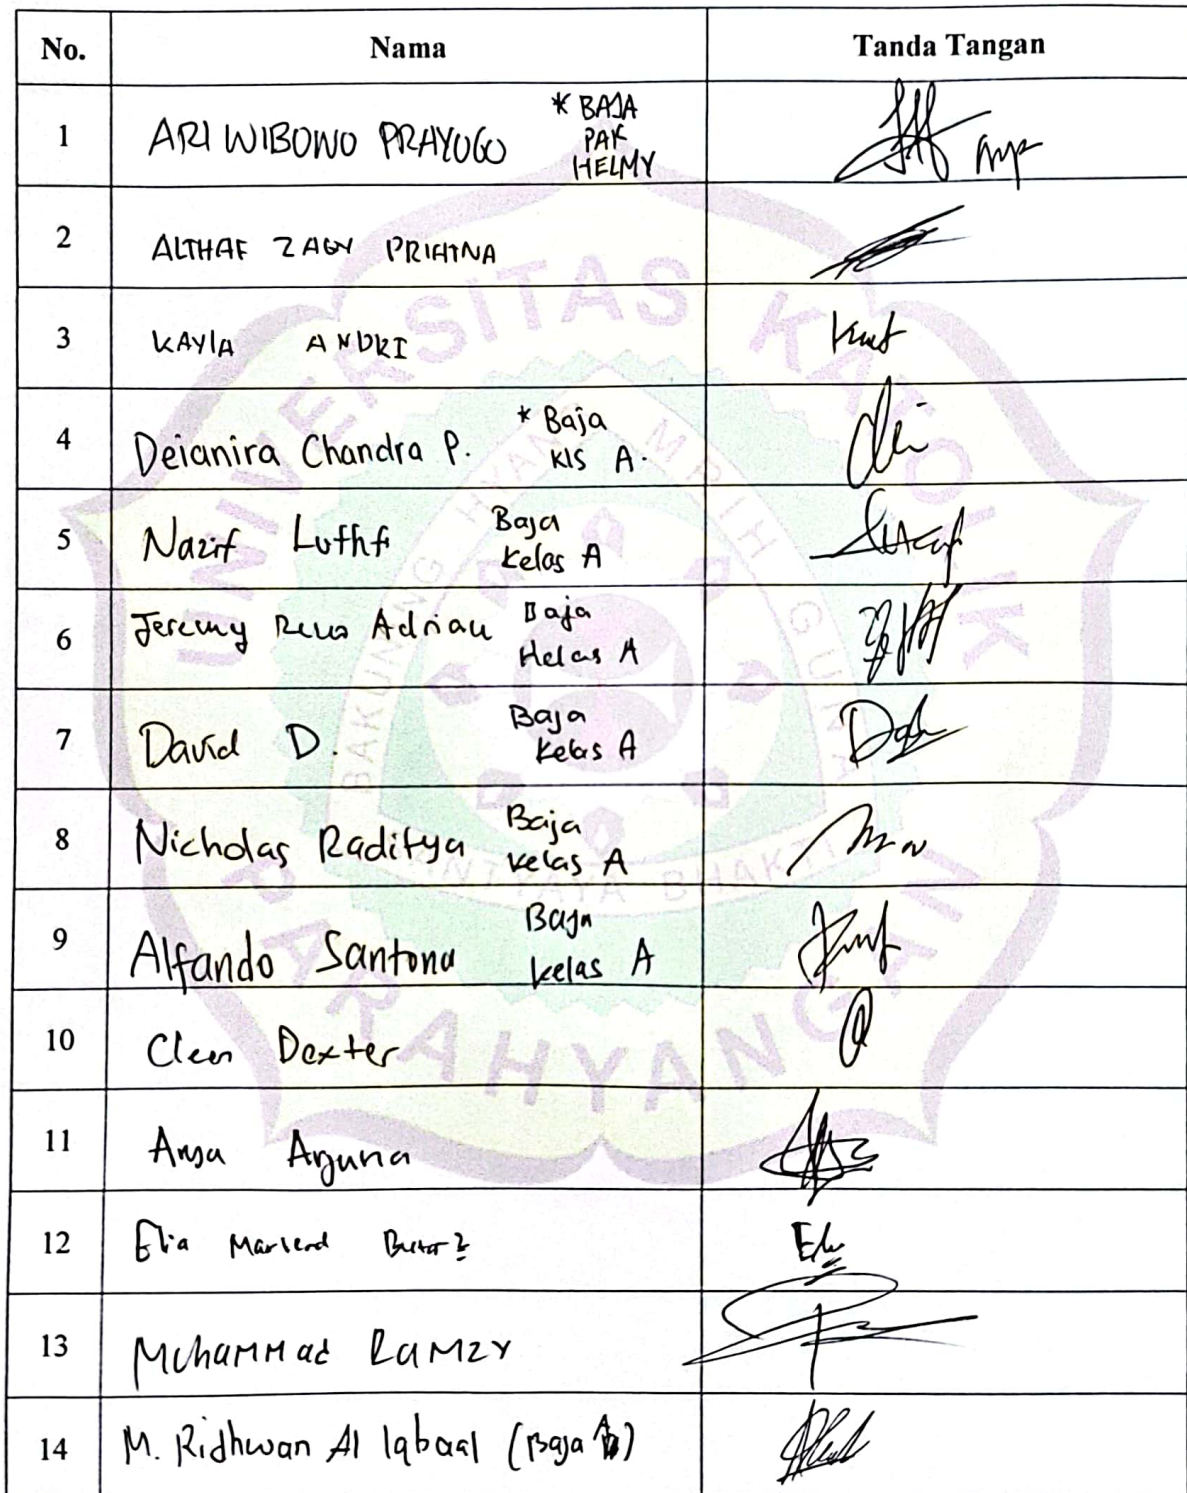 No. Nama Tanda Tangan
1 ARI WIBOWO PRAYOGO * BAJA
PAK
HELMY
2 ALTHAF ZAGY PRIHTNA
3 KAYLA ANDRI
4 Deianira Chandra P. * Baja
Kls A.
5 Nazif Luthfi Baja
Kelas A
6 Jeremy Adrian Baja
Kelas A
7 David D. Baja
Kelas A
8 Nicholas Raditya Baja
Kelas A
9 Alfando Santona Baja
Kelas A
10 Cleon Dexter
11 Arya Arjuna
12 Elia
13 Muhammad Ramzy
14 M. Ridhwan Al Iqbaal (Baja A)
UNIVERSITAS KATOLIK
PARAHYANGAN
BAKUNING HYANG MRIH GUNA
SANTYAYA BHAKTI